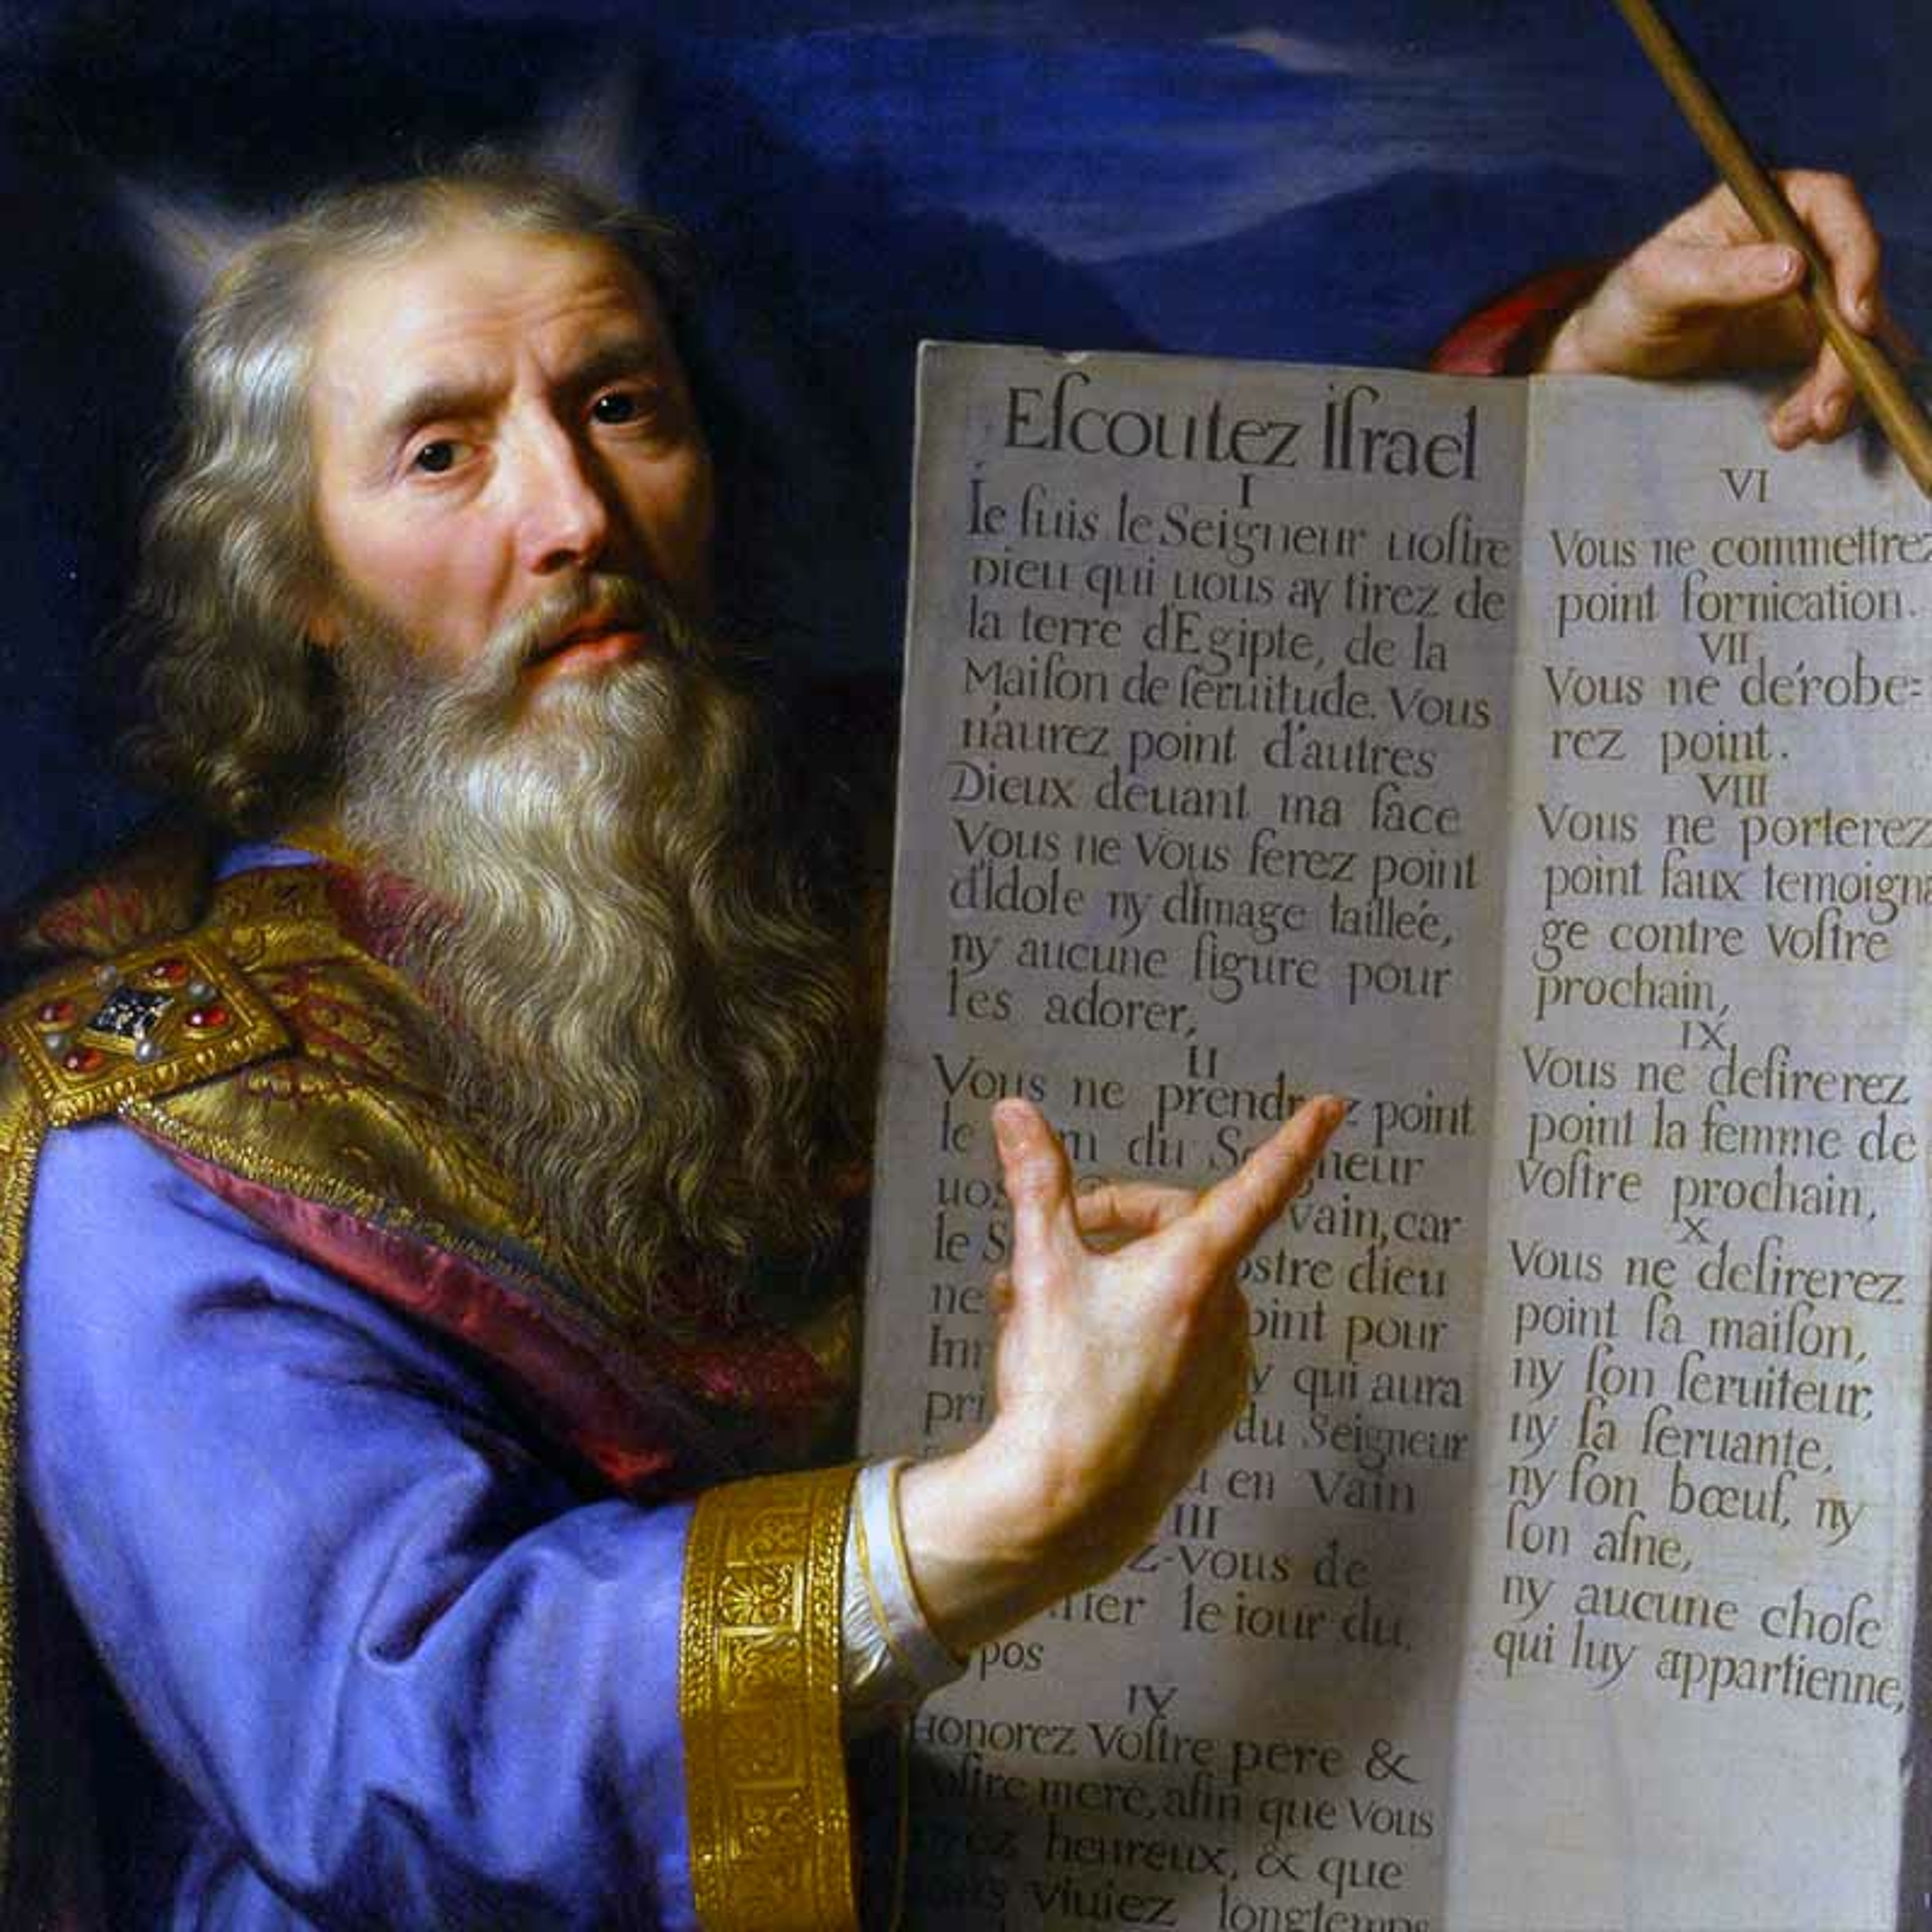 Eſcoutez Iſrael
I
Ie ſuis le Seigneur uoſtre
Dieu qui uous ay tirez de
la terre d'Egipte, de la
Maiſon de ſeruitude. Vous
n'aurez point d'autres
Dieux deuant ma face
Vous ne Vous ferez point
d'Idole ny d'Image tailleé,
ny aucune figure pour
les adorer,
II
Vous ne prendrez point
le du
vain, car
le dieu
pour
qui aura
du Seigneur
en Vain
III
vous de
le iour du
IV
Honorez Voſtre pere &
mere, afin que Vous
heureux, & que
viuiez longtemps
VI
Vous ne commettrez
point fornication.
VII
Vous ne dérobe=
rez point.
VIII
Vous ne porterez
point faux temoigna
ge contre Voſtre
prochain,
IX
Vous ne deſirerez
point la femme de
Voſtre prochain,
X
Vous ne deſirerez
point ſa maiſon,
ny ſon ſeruiteur,
ny ſa ſeruante,
ny ſon bœuf, ny
ſon aſne,
ny aucune choſe
qui luy appartienne,